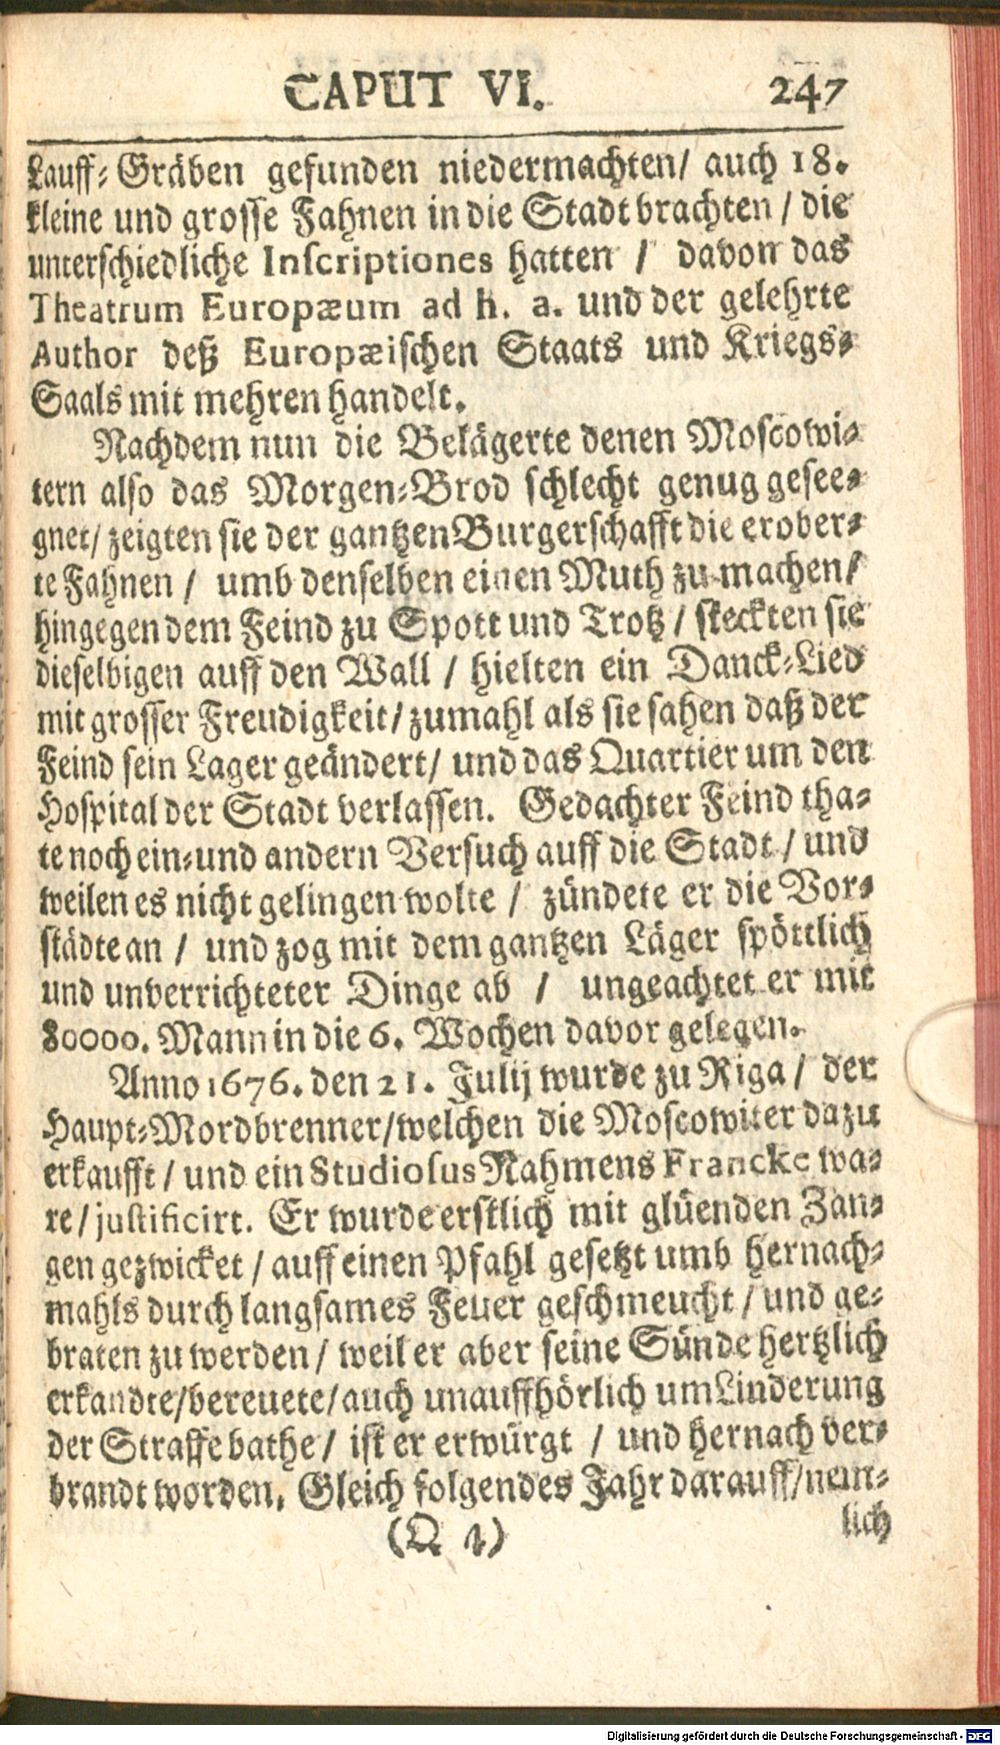 CAPUT VI. 247
Lauff-Gräben gefunden niedermachten/ auch 18.
kleine und grosse Fahnen in die Stadt brachten / die
unterschiedliche Inscriptiones hatten / davon das
Theatrum Europæum ad h. a. und der gelehrte
Author deß Europæischen Staats und Kriegs-
Saals mit mehren handelt.
Nachdem nun die Belägerte denen Moscowi-
tern also das Morgen-Brod schlecht genug gesee-
gnet/ zeigten sie der gantzen Burgerschafft die erober-
te Fahnen / umb denselben einen Muth zu machen/
hingegen dem Feind zu Spott und Trotz / steckten sie
dieselbigen auff den Wall / hielten ein Danck-Lied
mit grosser Freudigkeit/ zumahl als sie sahen daß der
Feind sein Lager geändert/ und das Quartier um den
Hospital der Stadt verlassen. Gedachter Feind tha-
te noch ein-und andern Versuch auff die Stadt / und
weilen es nicht gelingen wolte / zündete er die Vor-
städte an / und zog mit dem gantzen Läger spöttlich
und unverrichteter Dinge ab / ungeachtet er mit
80000. Mann in die 6. Wochen davor gelegen.
Anno 1676. den 21. Julij wurde zu Riga / der
Haupt-Mordbrenner/welchen die Moscowiter dazu
erkaufft / und ein Studiosus Nahmens Francke wa-
re / justificirt. Er wurde erstlich mit glüenden Zan-
gen gezwicket / auff einen Pfahl gesetzt umb hernach-
mahls durch langsames Feuer geschmeucht / und ge-
braten zu werden / weil er aber seine Sünde hertzlich
erkandte/bereuete/auch unauffhörlich um Linderung
der Straffe bathe / ist er erwürgt / und hernach ver-
brandt worden. Gleich folgendes Jahr darauff/nem-
(Q 4) lich
Digitalisierung gefördert durch die Deutsche Forschungsgemeinschaft - DFG